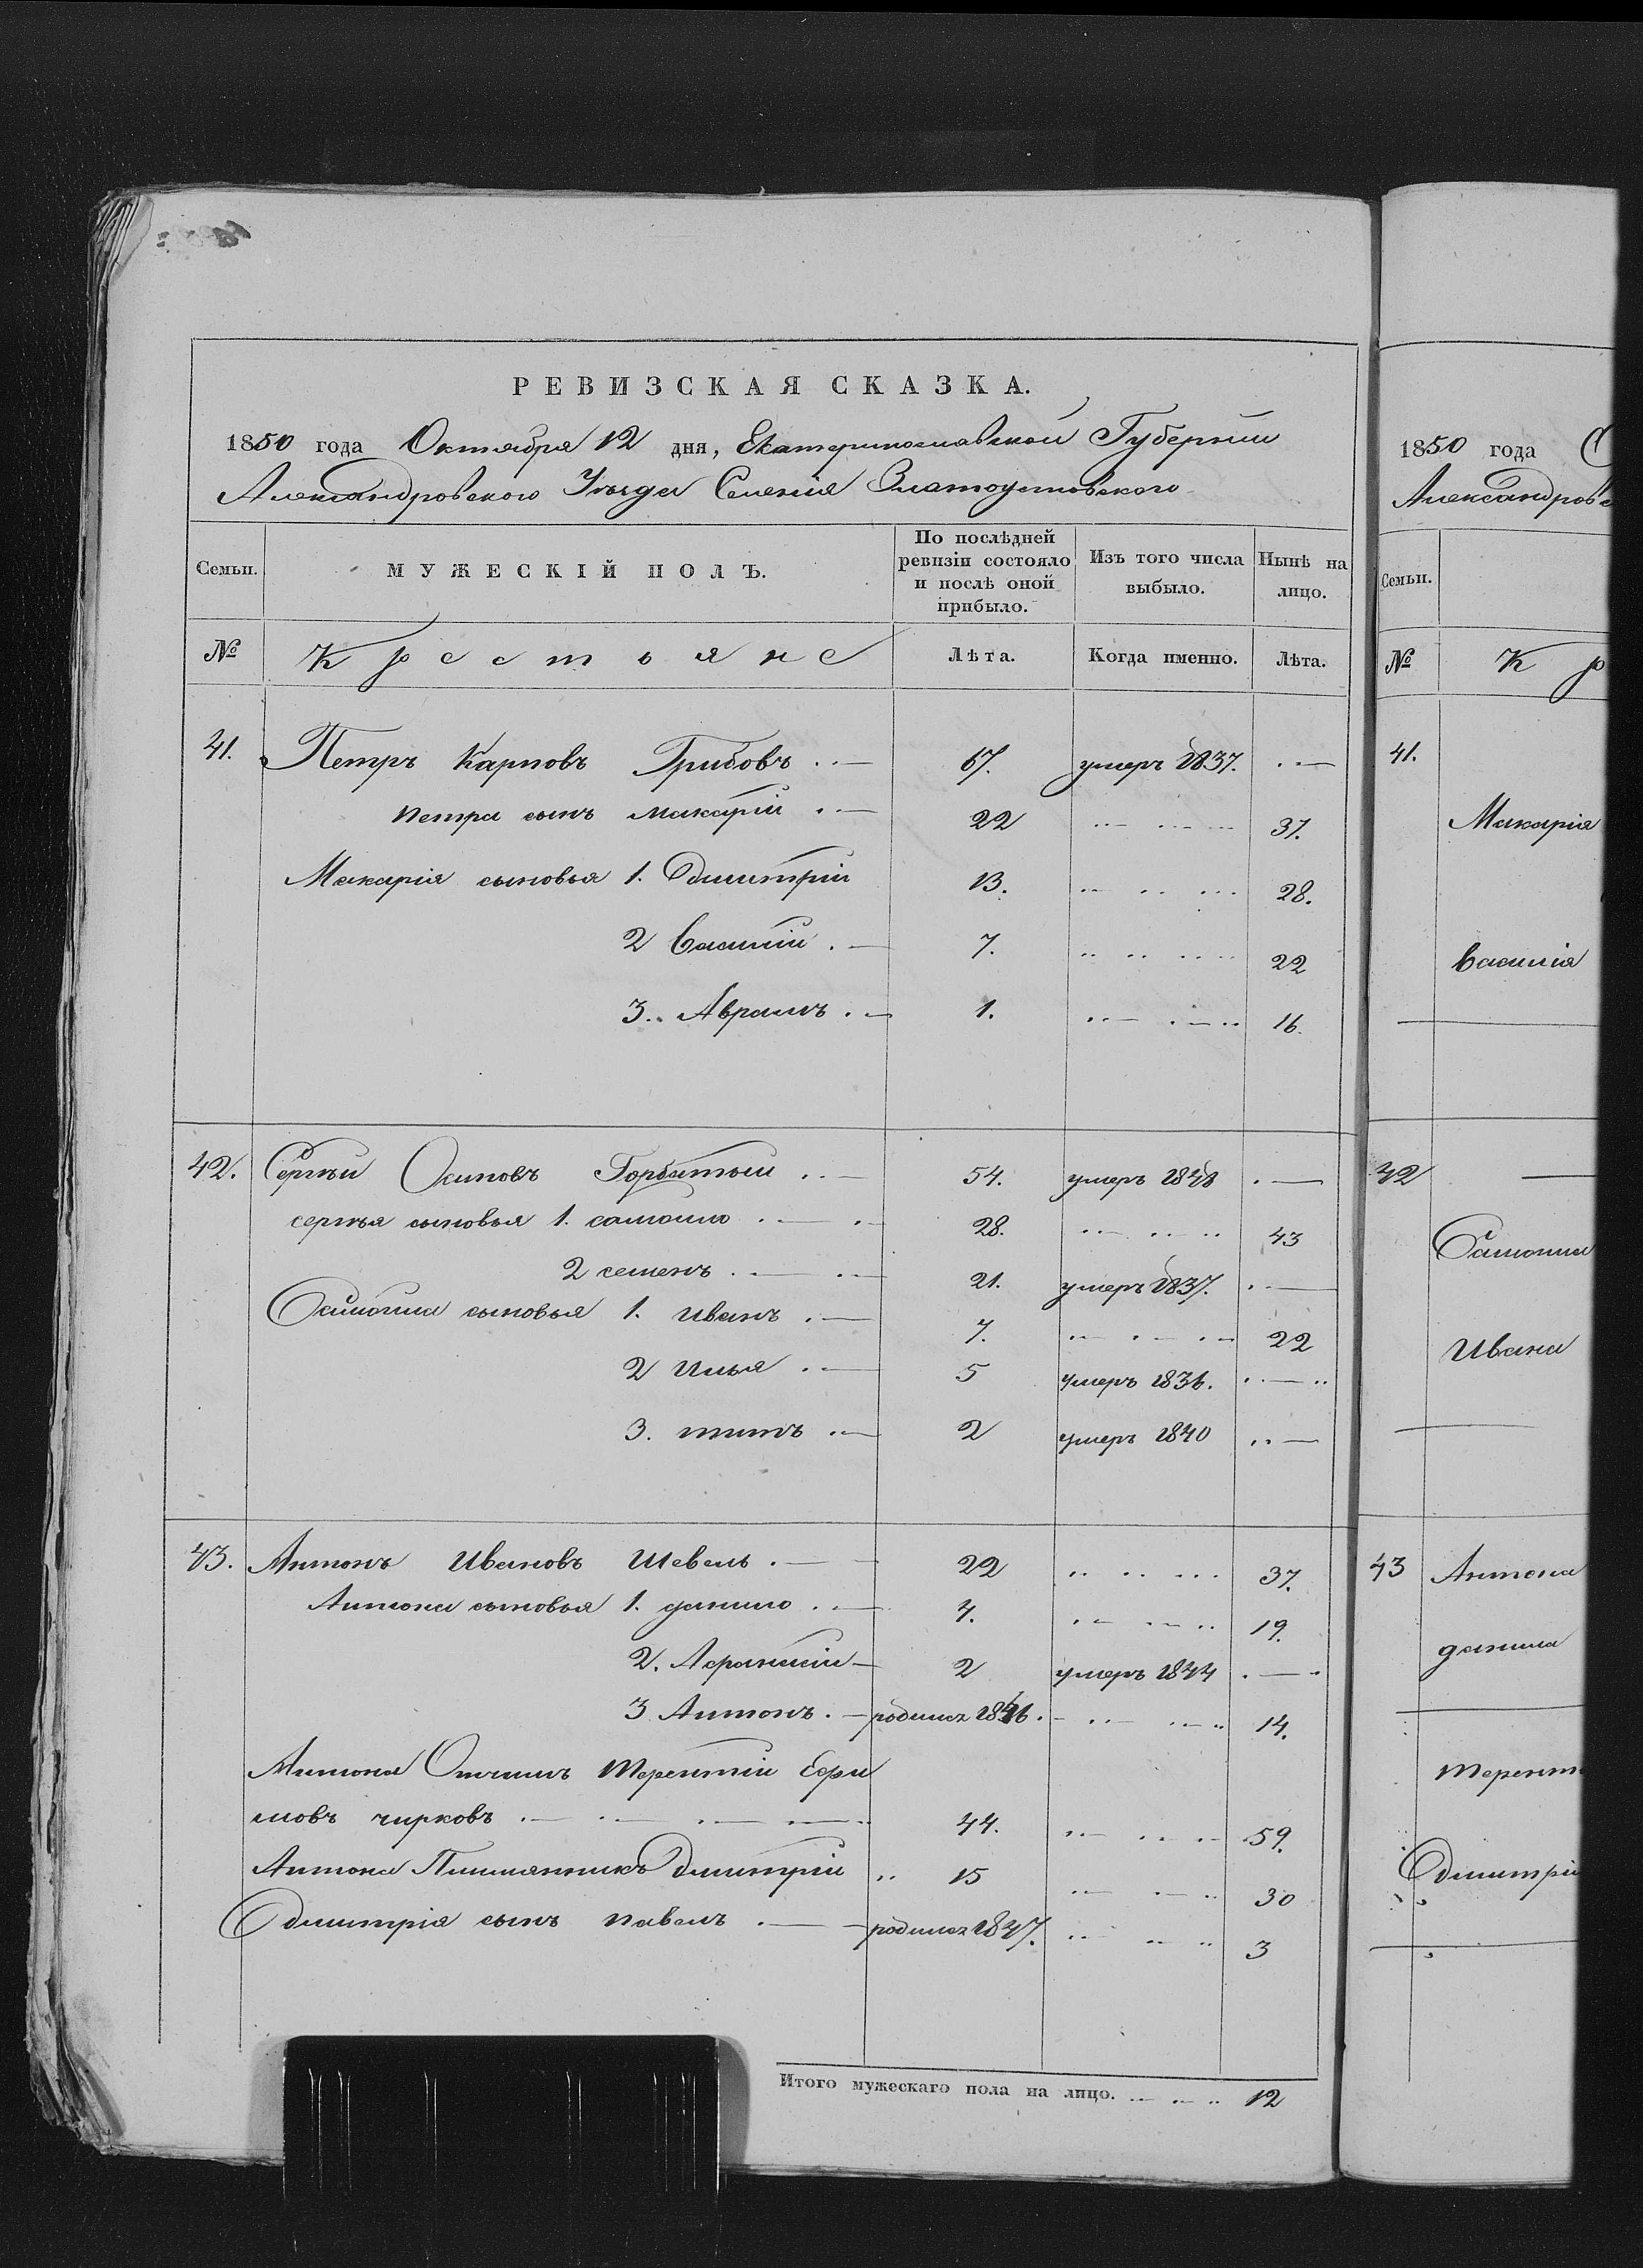 РЕВИЗСКАЯ СКАЗКА.
1850 года Октября 12 дня, Екатеринославской Губернии
Александровского Уезда Селения Златоустовского
Семьи. МУЖЕСКІЙ ПОЛЪ. По послѣдней ревизіи состояло и послѣ оной прибыло. Изъ того числа выбыло. Нынѣ на лицо.
№ Крестьяне Лѣта. Когда именно. Лѣта.
41. Петръ Карповъ Грибовъ 67. умеръ 1837.
петра сынъ макарій 22 37.
Макарія сыновья 1. Дмитрій 13. 28.
2 Василій 7. 22
3. Аврамъ 1. 16.
42. Сергѣй Осиповъ Горбатый 54. умеръ 1848
сергѣя сыновья 1. самойло 28. 43
2 семенъ 21. умеръ 1837.
Самойла сыновья 1. иванъ 7. 22
2 илья 5 умеръ 1836.
3. титъ 2 умеръ 1840
43. Антонъ Ивановъ Шевель 22 37.
Антона сыновья 1. данило 4. 19.
2. Афанасій 2 умеръ 1844
3 Антонъ родился 1836. 14.
Антона Отчимъ Терентій Ефи
мовъ чирковъ 44. 59.
Антона Племянникъ Дмитрій 15 30
Дмитрія сынъ павелъ родился 1847. 3
Итого мужескаго пола на лицо. 12
1850 года
Александров
Семьи.
№ К р
41.
Макарія
Василія
42
Самойла
Ивана
43 Антона
данила
Терент
Дмитрі